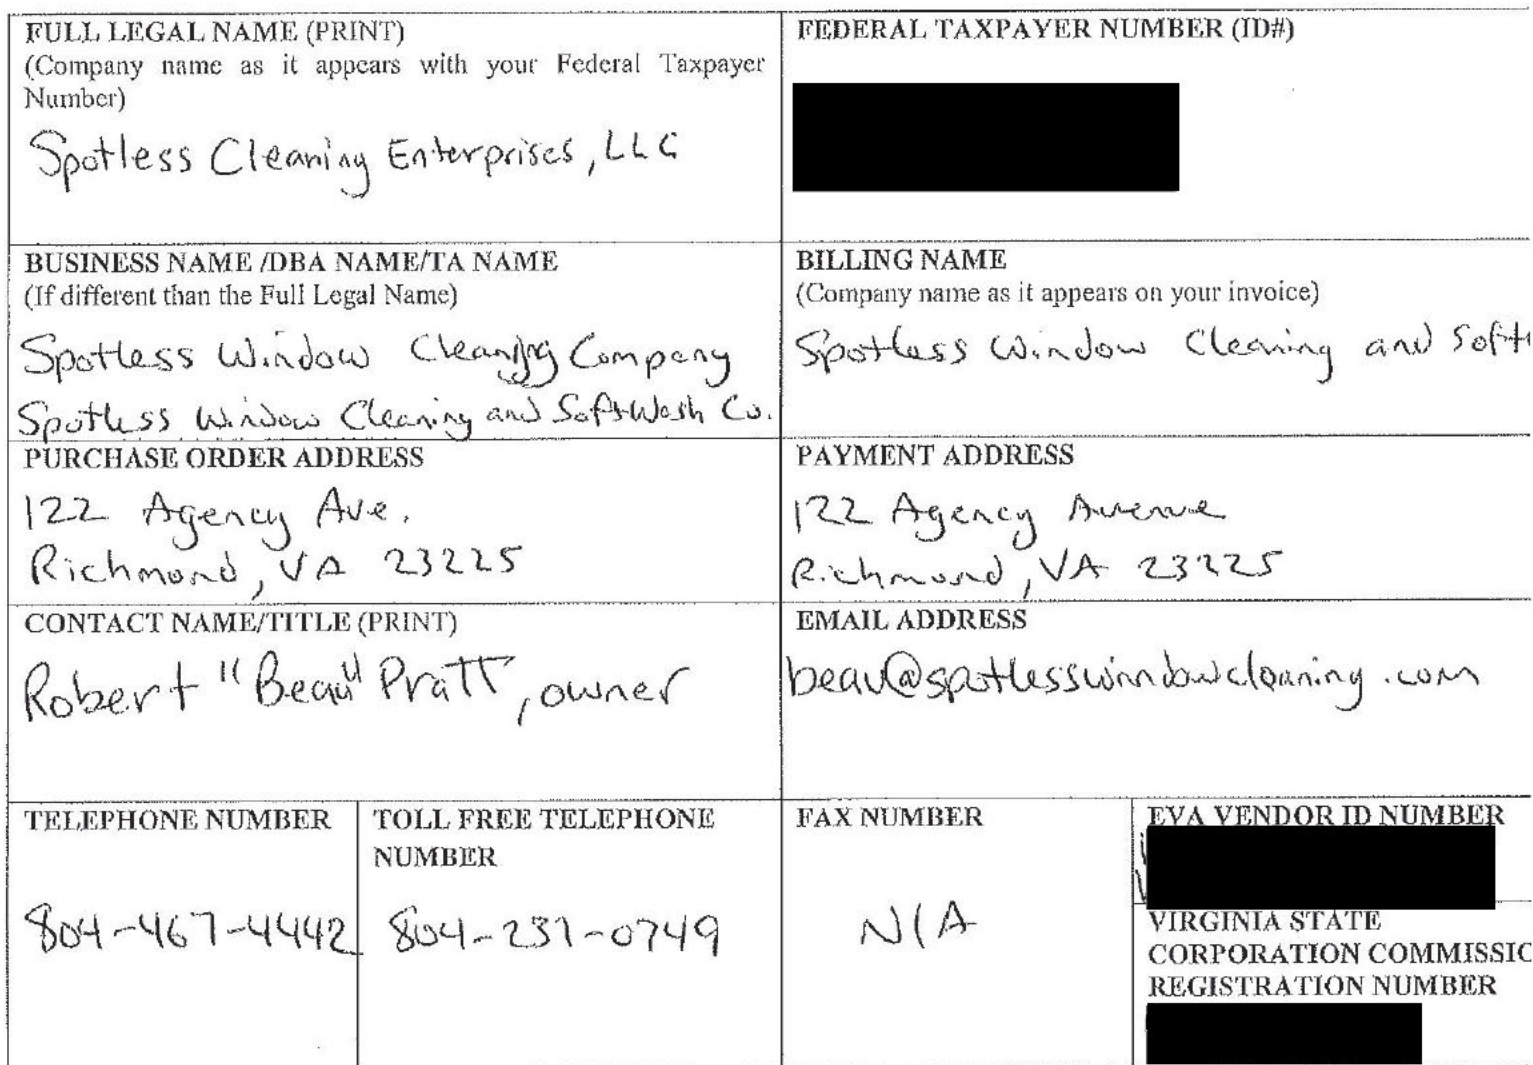 FULL LEGAL NAME (PRINT)
(Company name as it appears with your Federal Taxpayer
Number)
Spotless Cleaning Enterprises, LLC
FEDERAL TAXPAYER NUMBER (ID#)
BUSINESS NAME /DBA NAME/TA NAME
(If different than the Full Legal Name)
Spotless Window Cleaning Company
Spotless Window Cleaning and SoftWash Co.
BILLING NAME
(Company name as it appears on your invoice)
Spotless Window Cleaning and Soft
PURCHASE ORDER ADDRESS
122 Agency Ave.
Richmond, VA 23225
PAYMENT ADDRESS
122 Agency Avenue
Richmond, VA 23225
CONTACT NAME/TITLE (PRINT)
Robert "Beau" Pratt, owner
EMAIL ADDRESS
beau@spotlesswindowcleaning.com
TELEPHONE NUMBER
804-467-4442
TOLL FREE TELEPHONE
NUMBER
804-231-0749
FAX NUMBER
N/A
EVA VENDOR ID NUMBER
VIRGINIA STATE
CORPORATION COMMISSIO
REGISTRATION NUMBER